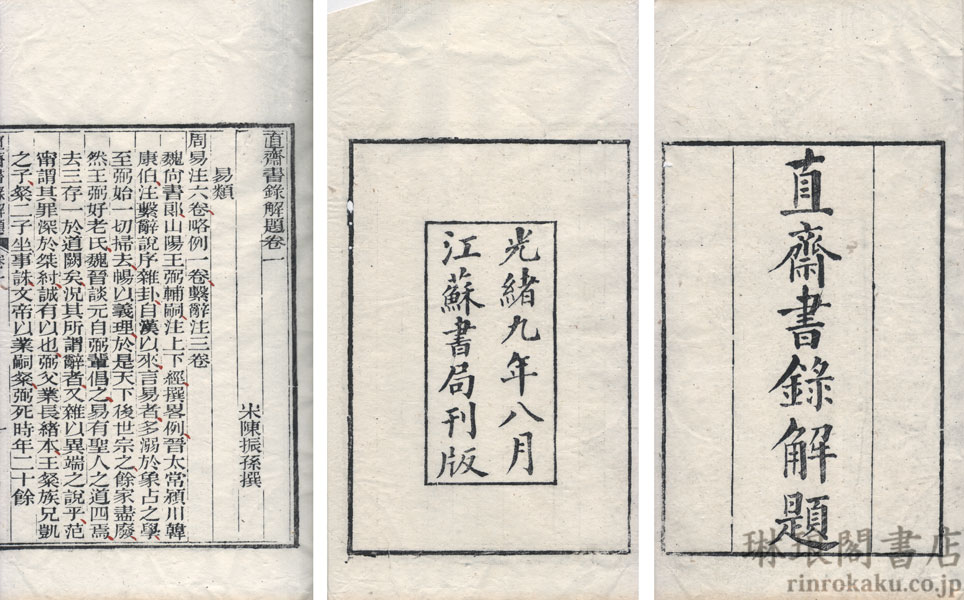 直齋書錄解題
光緒九年八月
江蘇書局刊版
直齋書錄解題卷一
宋陳振孫撰
易類
周易注六卷略例一卷繫辭注三卷
魏尙書郎山陽王弼輔嗣注上下經撰畧例晉太常潁川韓
康伯注繫辭說序雜卦自漢以來言易者多溺於象占之學
至弼始一切掃去暢以義理於是天下後世宗之餘家盡廢
然王弼好老氏魏晉談元自弼輩倡之易有聖人之道四焉
去三存一於道闕矣況其所謂辭者又雜以異端之說乎范
甯謂其罪深於桀紂誠有以也弼父業長緒本王粲族兄凱
之子粲二子坐事誅文帝以業嗣粲弼死時年二十餘
直齋書錄解題
琳琅閣書店
rinrokaku.co.jp